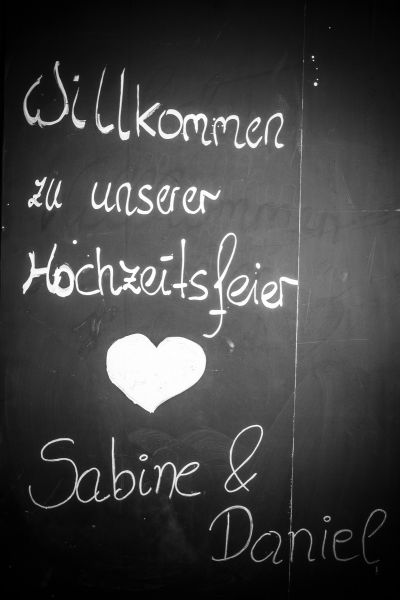 Willkommen
zu unserer
Hochzeitsfeier
Sabine &
Daniel